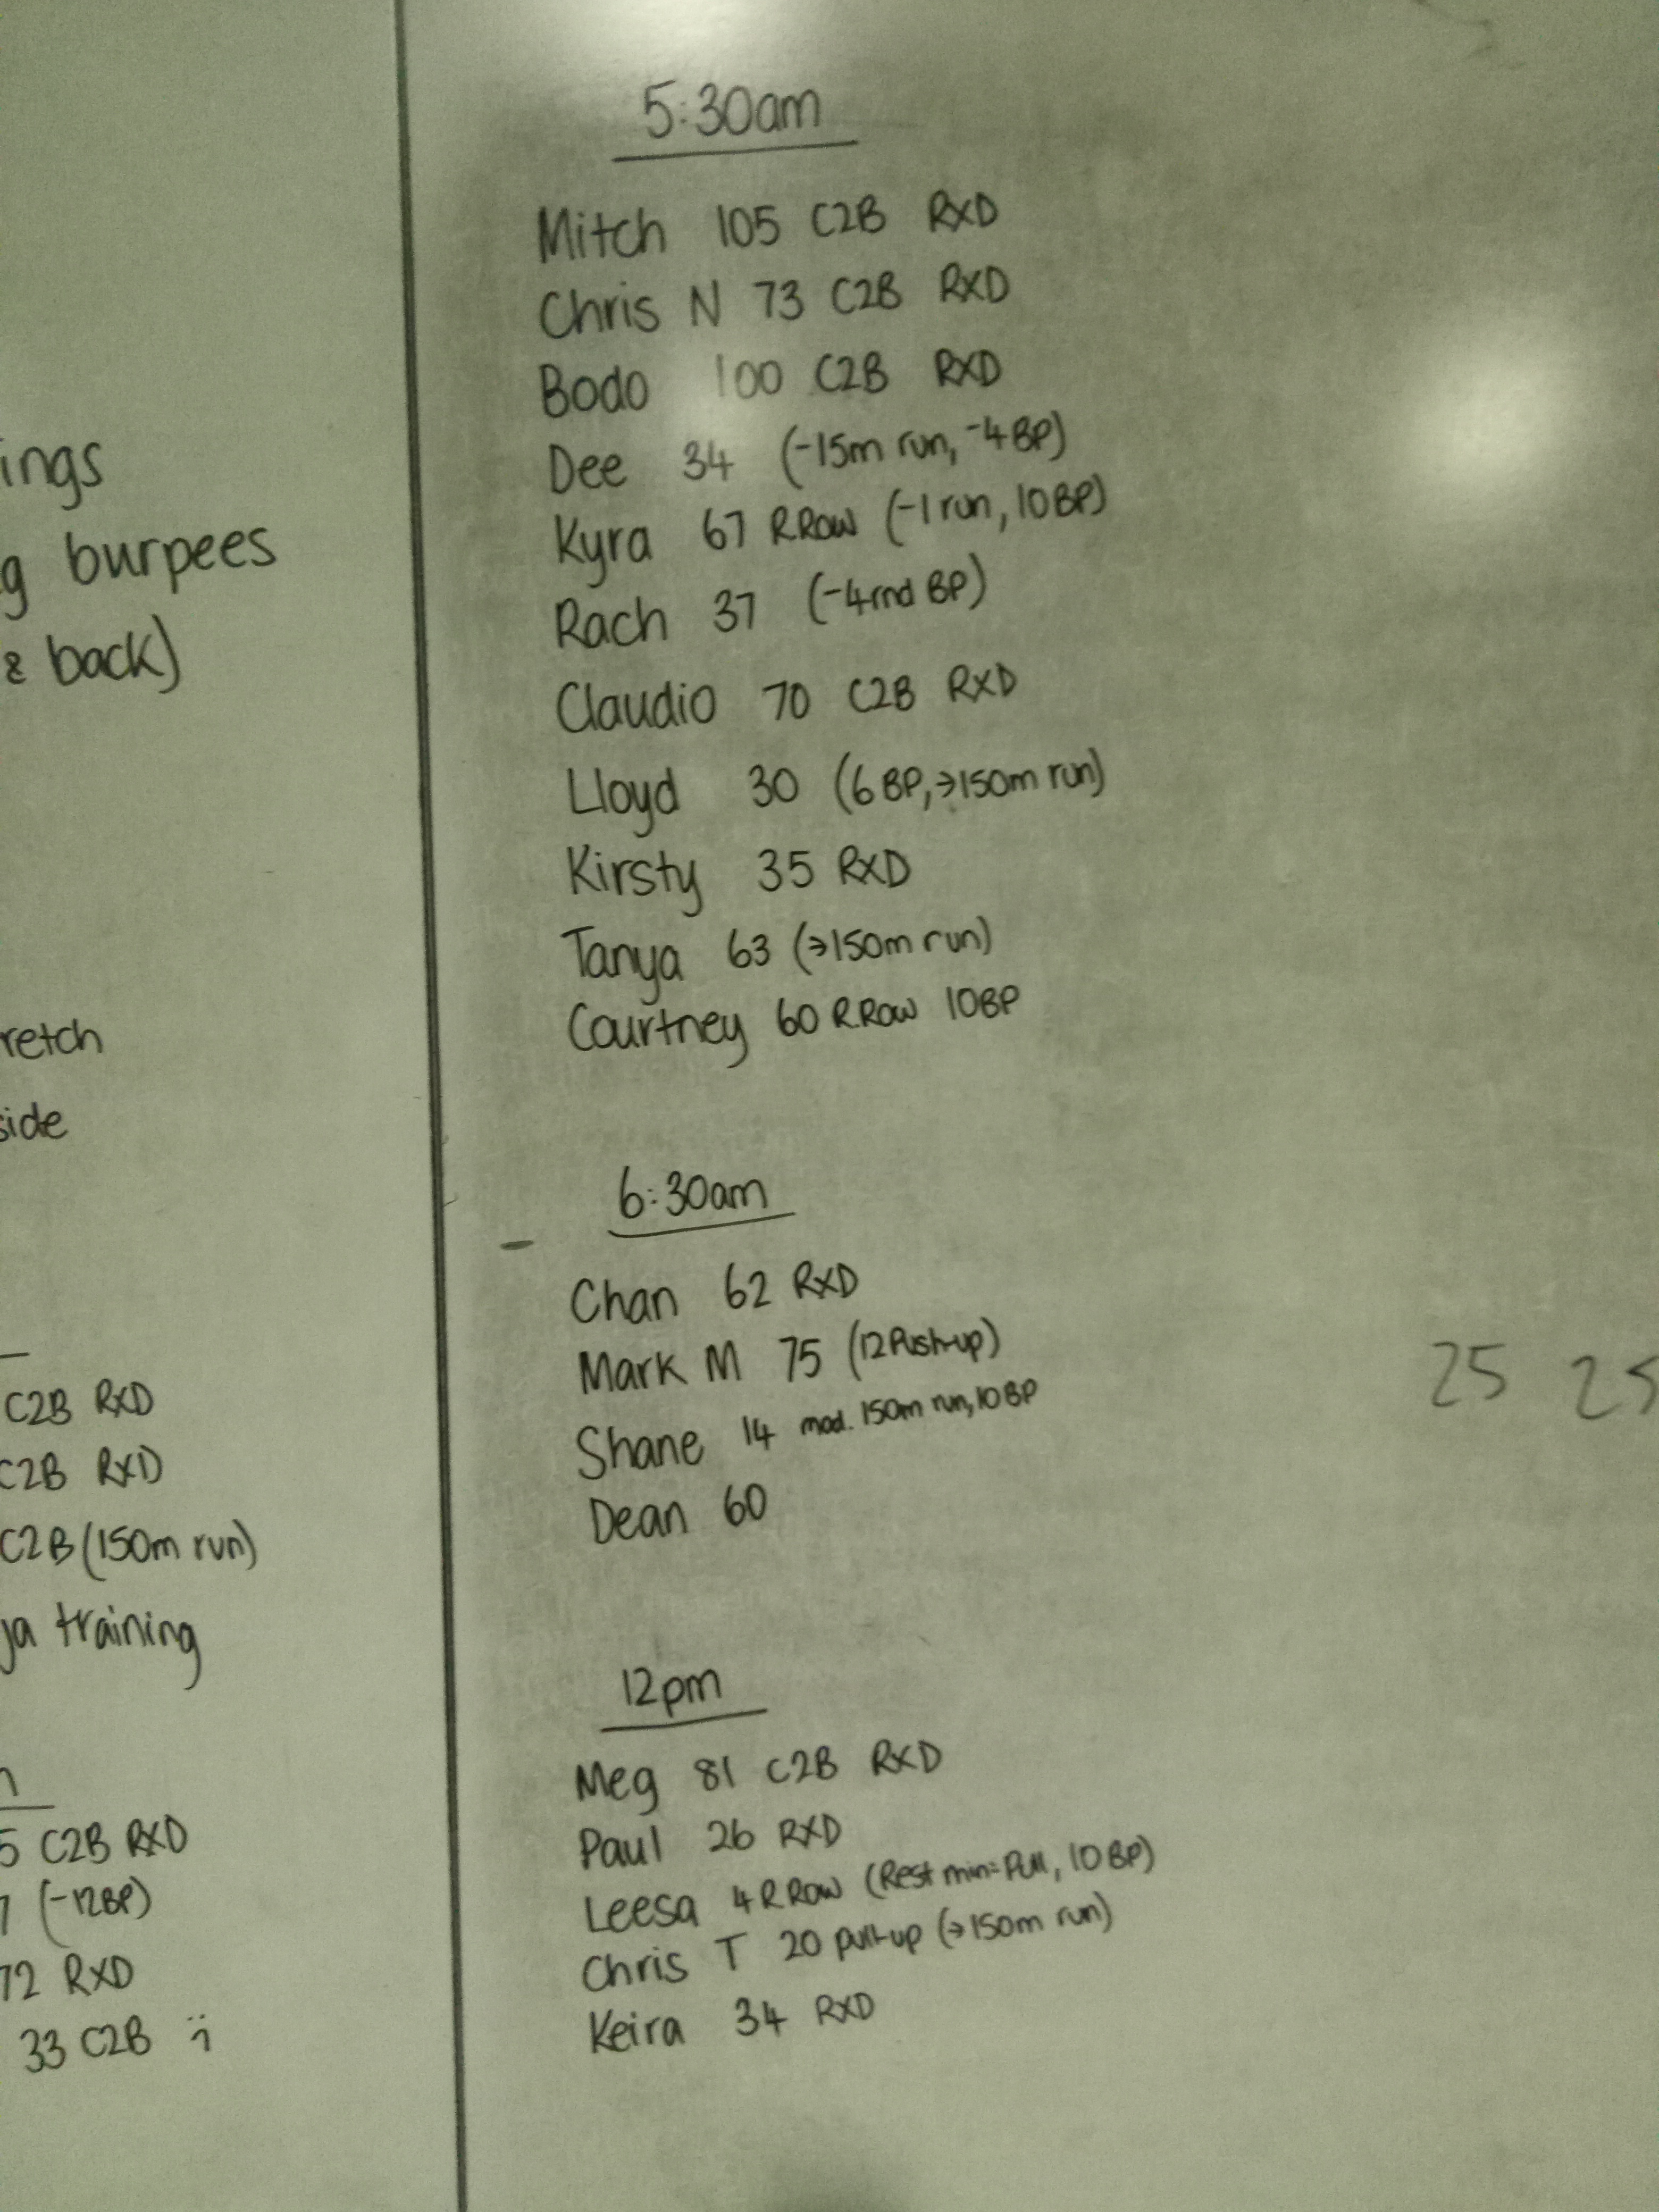 ings
burpees
& back)
retch
side
C2B RXD
C2B RXD
C2B (150m run)
ja training
5 C2B RXD
(-12BP)
72 RXD
33 C2B
5:30am
Mitch 105 C2B RXD
Chris N 73 C2B RXD
Bodo 100 C2B RXD
Dee 34 (-15m run, -4BP)
Kyra 67 R.Row (-1 run, 10BP)
Rach 37 (-4rnd BP)
Claudio 70 C2B RXD
Lloyd 30 (6 BP, →150m run)
Kirsty 35 RXD
Tanya 63 (→150m run)
Courtney 60 R.Row 10BP
6:30am
Chan 62 RXD
Mark M 75 (12 Push-up)
Shane 14 mod. 150m run, 10BP
Dean 60
12pm
Meg 81 C2B RXD
Paul 26 RXD
Leesa 4 R Row (Rest min= Pull, 10BP)
Chris T 20 pull-up (→150m run)
Keira 34 RXD
25 25